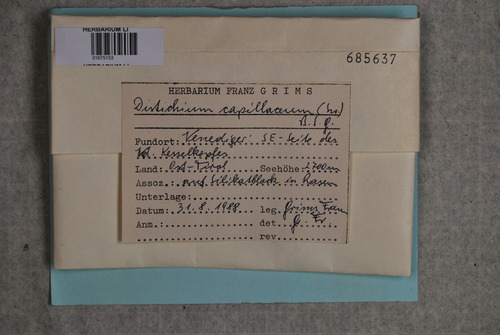 HERBARIUM LI
01675153
HERBARIUM LI
685637
HERBARIUM FRANZ GRIMS
Distichium capillaceum (
B.S.G.
Fundort: Venediger: SE-Seite des
Kesselkopfes
Land: Ost-Tirol Seehöhe: 2700m
Assoz. auf Silikatblock in Rasen
Unterlage:
Datum: 31.8.1988 leg. Grims Franz
Anm.: det. G. Fr.
rev.